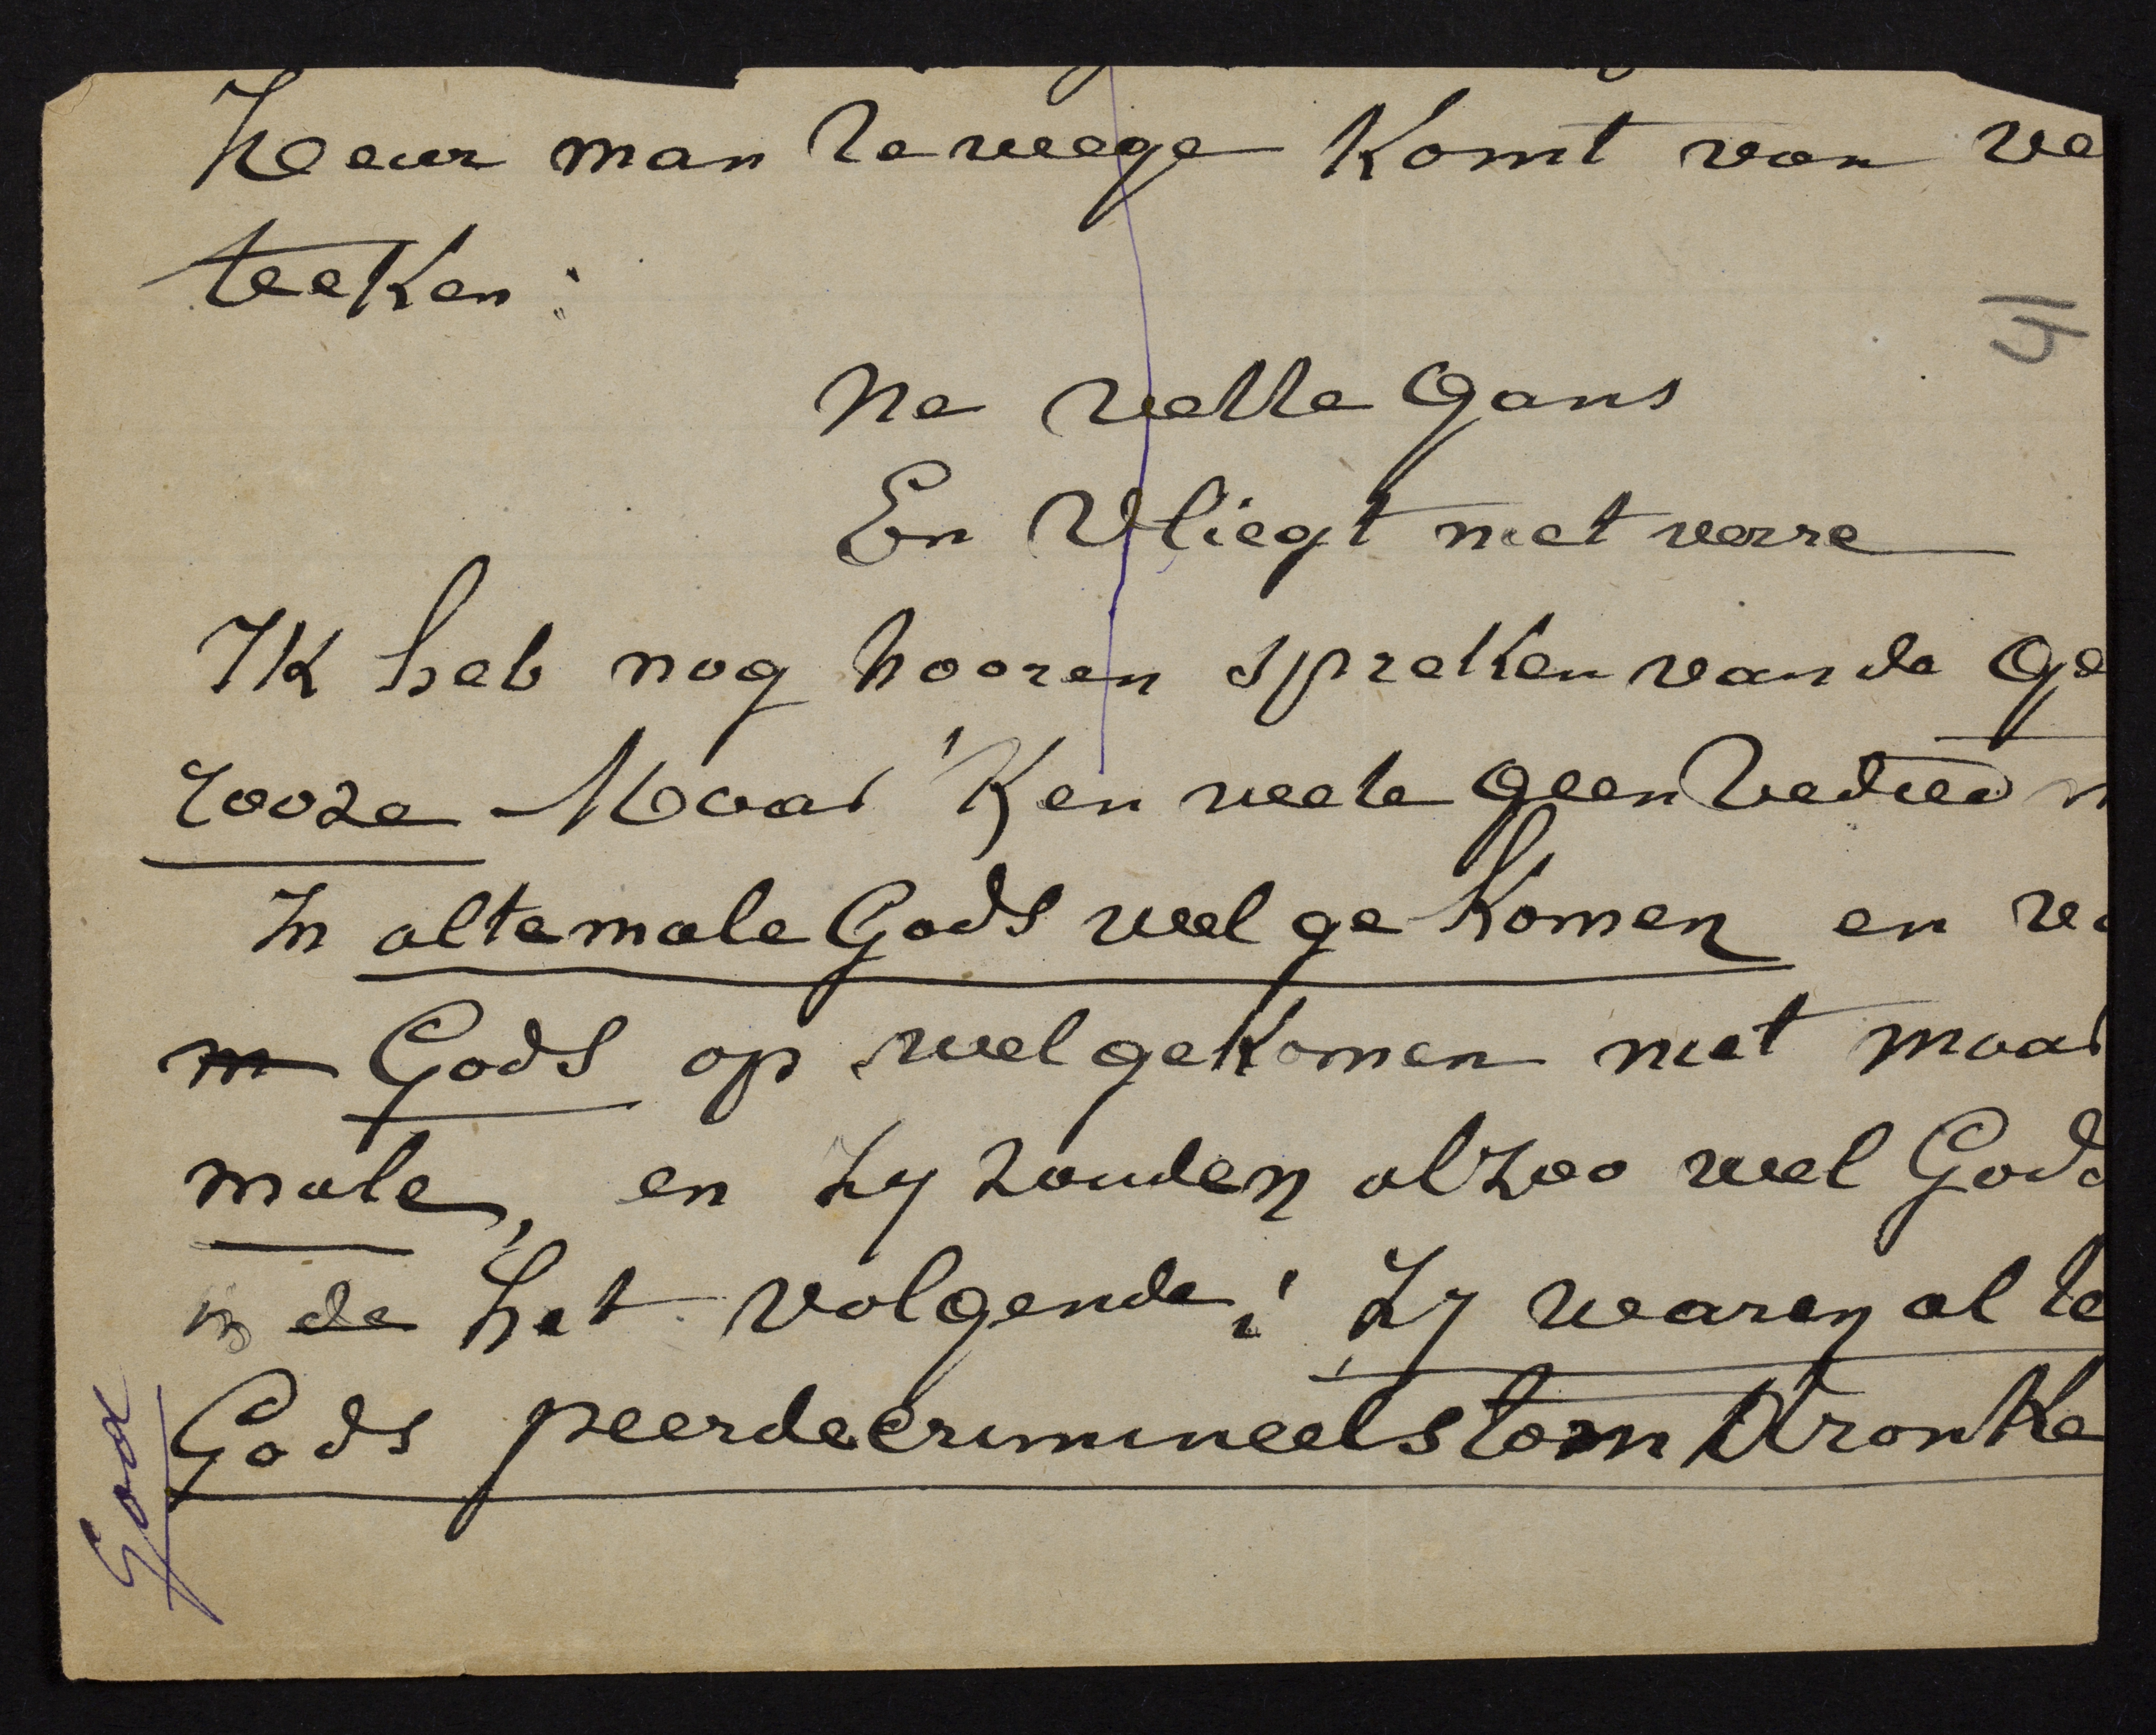 heur man te wege komt van ve
teeken:
Ne vette Gans
En Vliegt niet verre
Ik heb nog hooren spreken van de ge
rooze Maar 'k en weete geen bedied n
In altemale Gods wel gekomen en ve
m Gods op wel gekomen niet maar
male, en zy zouden alzoo wel Gods
in de het volgende: Zy waren al te
Gods peerdecrimineelstom dronke
God